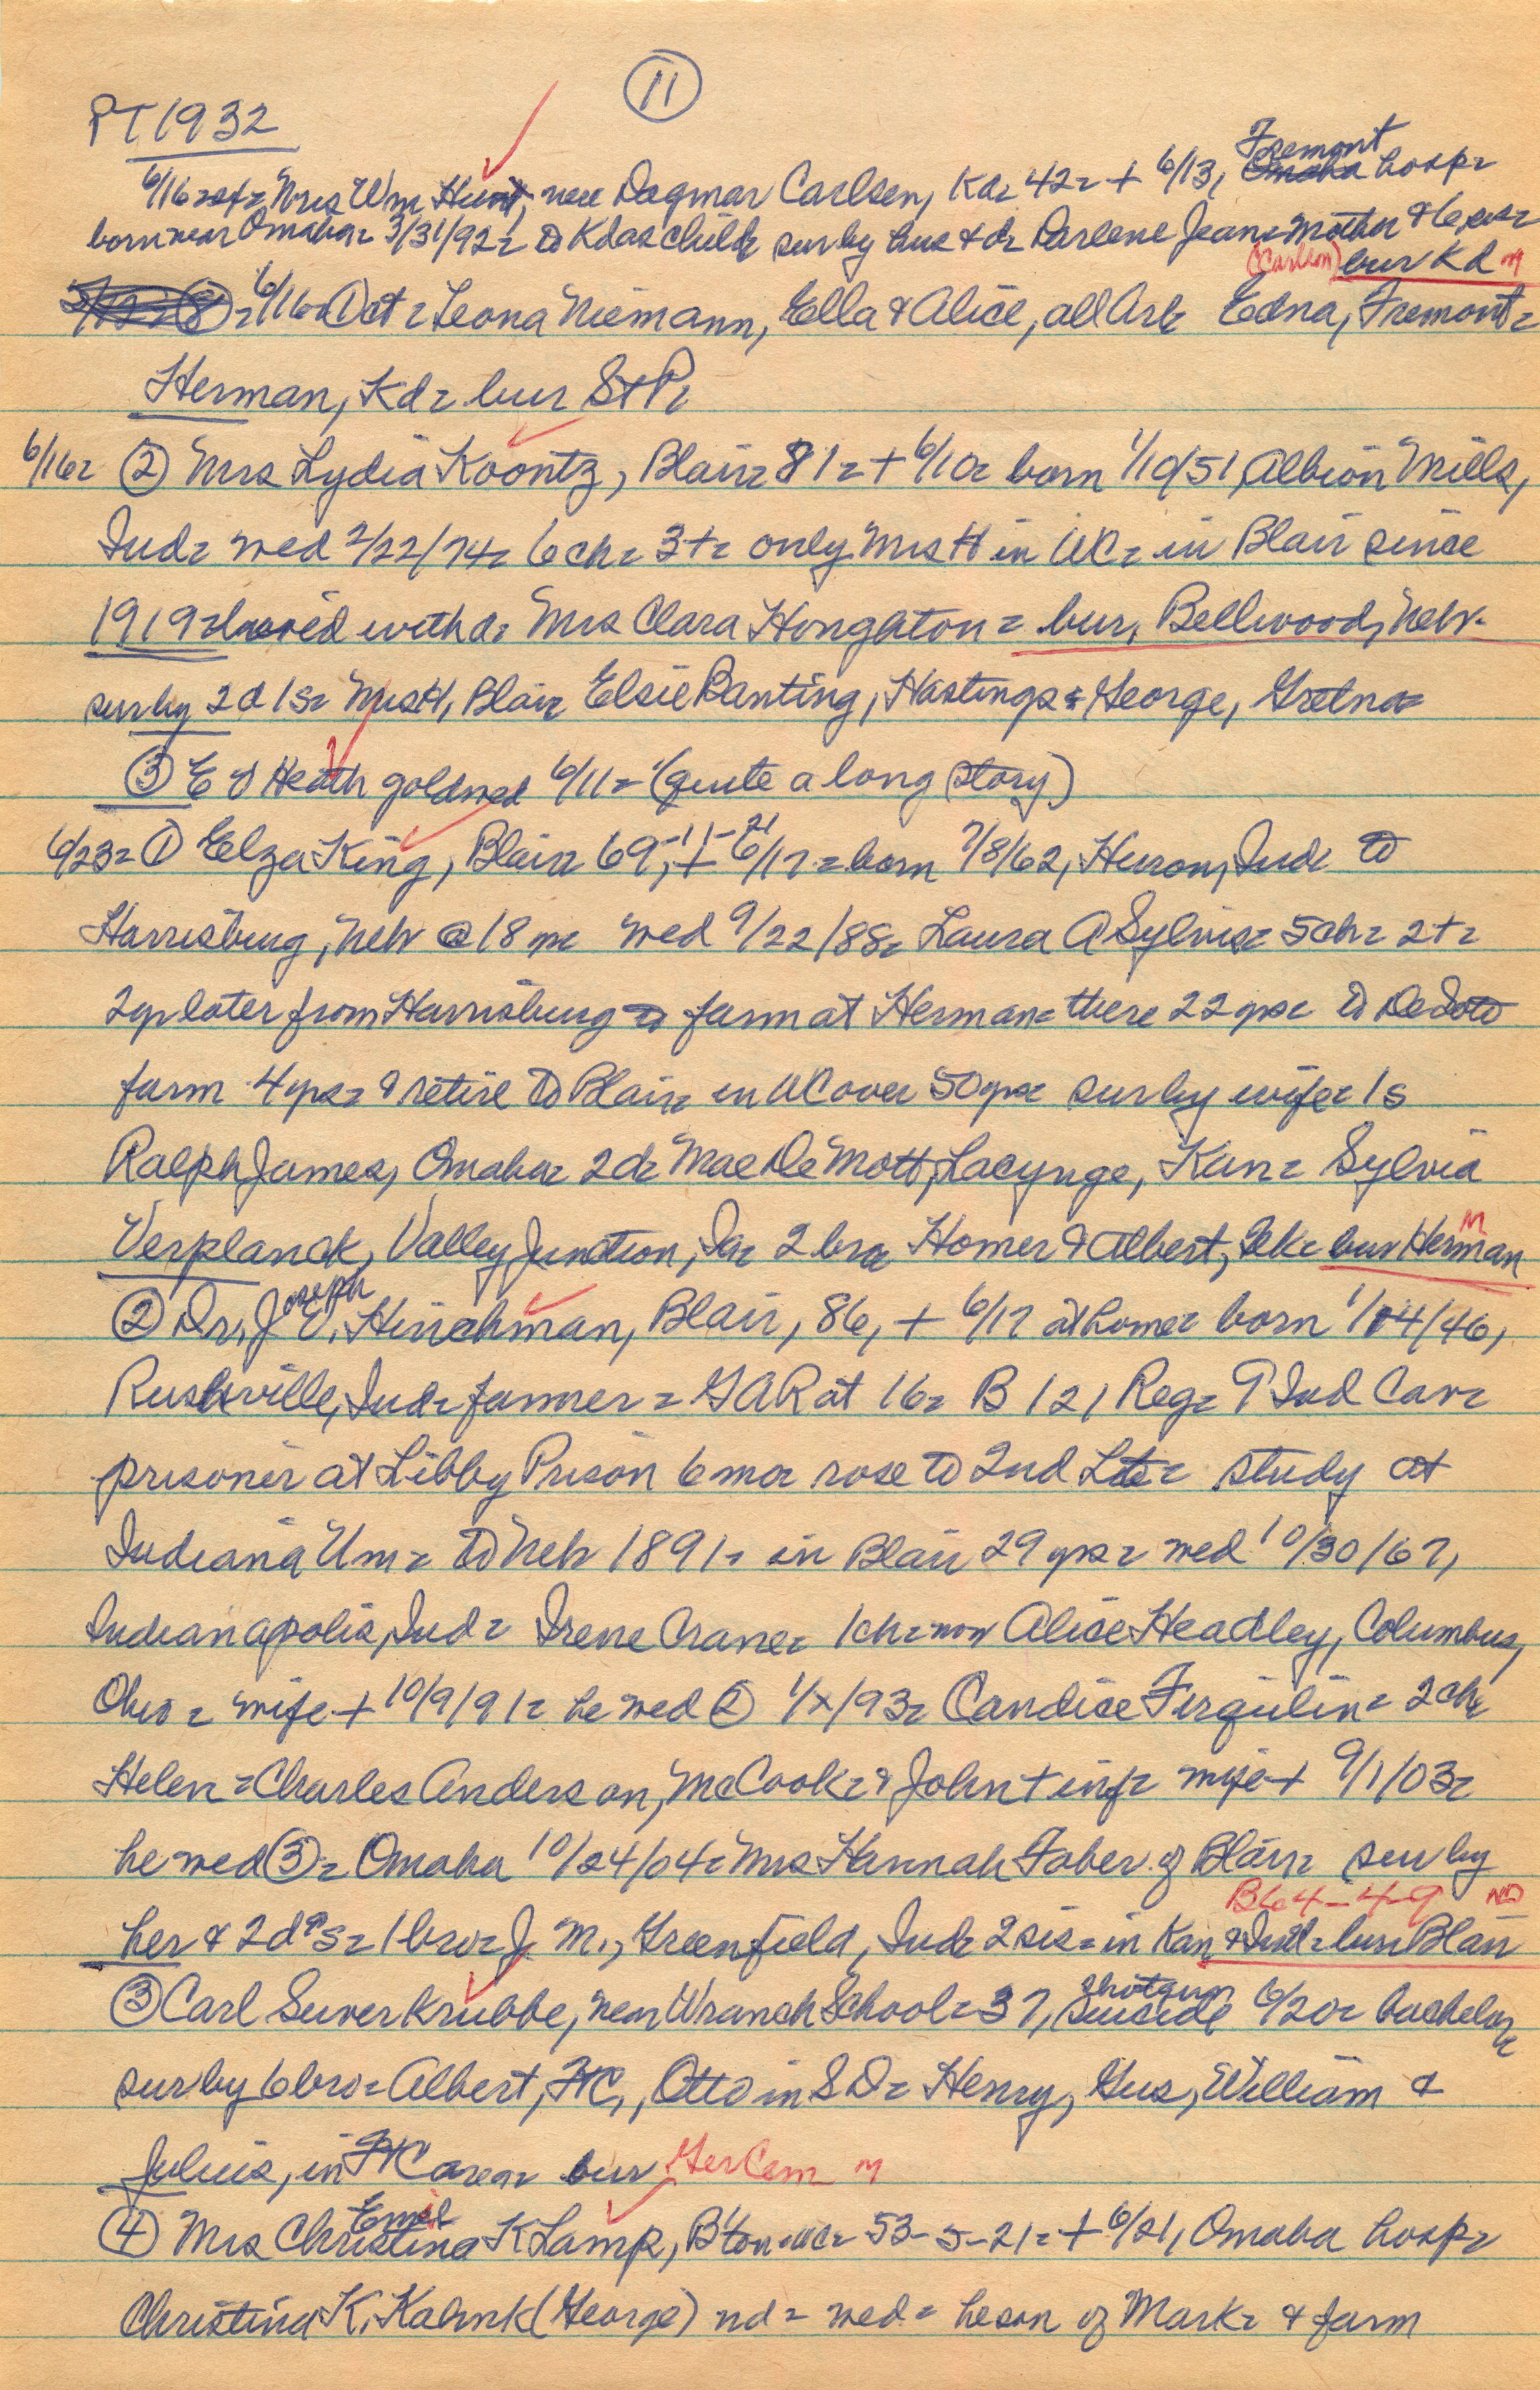 11
PT 1932
6/16 = Mrs Wm Hunt, nee Dagmar Carlsen, Kd = 42 = + 6/13, Omaha Fremont hosp =
born near Omaha = 3/31/92 = to Kd as child = sur by hus & d = Darlene Jean = mother & 6 sis =
(Carlsen) bur Kd m
6/16 = 1 ct = Leona Niemann, Ella & Alice, all Ark Edna, Fremont =
Herman, Kd = bur St P =
6/16 = 2 Mrs Lydia Koontz, Blair = 81 = + 6/10 = born 1/10/51, Albion Mills,
Ind = wed 2/22/74 = 6 ch = 3 + = only Mrs H in WC = in Blair since
1919 = lived with d = Mrs Clara Honghton = bur, Bellwood, Neb.
sur by 2 d 1 s = Mrs H, Blair Elsie Banting, Hastings & George, Gretna =
3 E J Heath gold wed 6/11 = (quite a long story)
6/23 = 1 Elza King, Blair = 69, -11-21 + 6/17 = born 7/8/62, Huron, Ind = to
Harrisburg, Neb @ 18 = wed 9/22/88 = Laura A Sylvis = 5 ch = 2 + =
2 yr later from Harrisburg to farm at Herman = there 22 yrs = to DeSoto
farm 4 yrs = & retire to Blair = in WC over 50 yrs = sur by wife = 1 s
Ralph James, Omaha = 2 d = Mae DeMott, Lacynge, Kan = Sylvia
Verplanck, Valley Junction, Ia = 2 bro = Homer & Albert, Tek = bur Herman m
2 Dr. J Joseph E. Hinchman, Blair, 86, + 6/17 at home = born 1/14/46,
Rushville, Ind = farmer = GAR at 16 = B 121 Reg = 9 Ind Cav =
prisoner at Libby Prison 6 mo = rose to 2nd Lt = study at
Indiana Um = to Neb 1891 = in Blair 29 yrs = wed 10/30/67,
Indianapolis, Ind = Irene Crane = 1 ch = now Alice Headley, Columbus,
Ohio = wife + 10/9/91 = he wed 2 1/x/93 = Candice Firgulin = 2 ch =
Helen = Charles Anderson, McCook = & John + inf = wife + 9/1/03 =
he wed 3 = Omaha 10/24/04 = Mrs Hannah Faber of Blair = sur by
B64-4-9 ND
her & 2 d's = 1 bro = J. M., Greenfield, Ind = 2 sis = in Kan & Ind = bur Blair
3 Carl Suverkrubbe, near Wranch School = 37, shotgun suicide 6/20 = bachelor =
sur by 6 bro = Albert, FtC, Otto in S D = Henry, Gus, William &
Julius, in FtC area = bur Ger Cem m
4 Mrs Emil Christina K Lamp, B'ton = WC = 53-5-21 = + 6/21, Omaha hosp =
Christina K. Kahnk (George) nd = wed = he son of Mark = & farm